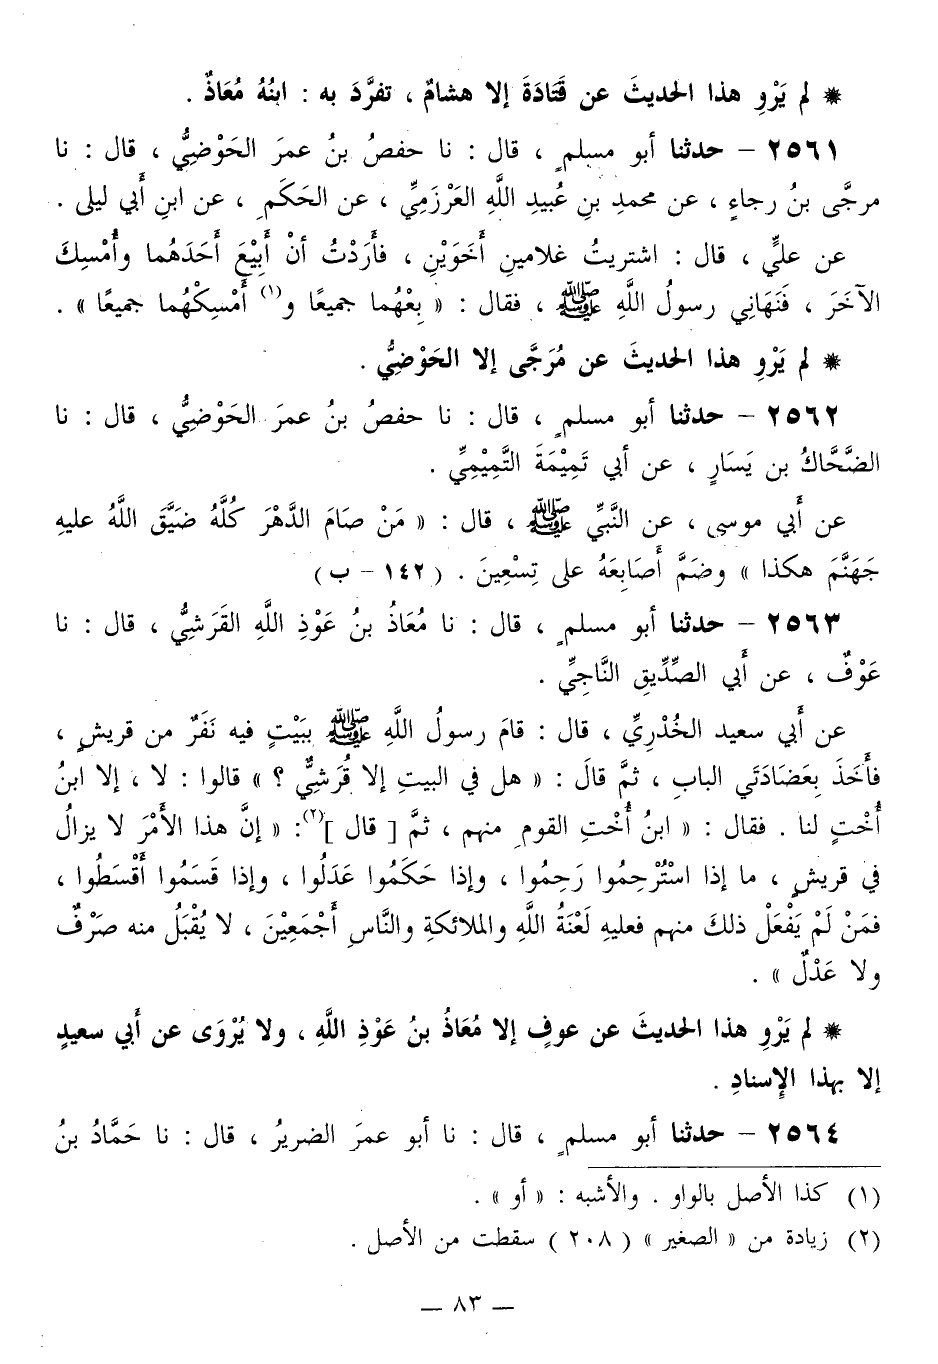 * لم يَرْوِ هذا الحديثَ عن قَتَادَةَ إلا هشامٌ ، تفرَّدَ به : ابنُهُ مُعَاذٌ .
٢٥٦١ – حدثنا أبو مسلمٍ ، قال : نا حفصُ بنُ عمرَ الحَوْضِيُّ ، قال : نا
مرجَّى بنُ رجاءٍ ، عن محمدِ بنِ عُبيدِ اللَّهِ العَرْزَمِيِّ ، عن الحَكَمِ ، عن ابنِ أبي ليلى .
عن عليٍّ ، قال : اشتريتُ غلامينِ أَخَوَيْنِ ، فأَرَدْتُ أنْ أَبِيْعَ أَحَدَهُما وأُمْسِكَ
الآخَرَ ، فَنَهَانِي رسولُ اللَّهِ ﷺ ، فقال : « بِعْهُما جميعًا و(١) أَمْسِكْهُما جميعًا » .
* لم يَرْوِ هذا الحديثَ عن مُرَجَّى إلا الحَوْضِيُّ .
٢٥٦٢ – حدثنا أبو مسلمٍ ، قال : نا حفصُ بنُ عمرَ الحَوْضِيُّ ، قال : نا
الضَّحَّاكُ بن يَسَارٍ ، عن أبي تَمِيْمَةَ التَّمِيْمِيِّ .
عن أَبي موسى ، عن النَّبيِّ ﷺ ، قال : « مَنْ صَامَ الدَّهْرَ كُلَّهُ ضَيَّقَ اللَّهُ عليهِ
جَهَنَّمَ هكذا » وضَمَّ أَصَابِعَهُ على تِسْعِينَ . ( ١٤٢ – ب )
٢٥٦٣ – حدثنا أبو مسلمٍ ، قال : نا مُعَاذُ بنُ عَوْذِ اللَّهِ القَرَشِيُّ ، قال : نا
عَوْفٌ ، عن أَبي الصِّدِّيقِ النَّاجِيِّ .
عن أَبي سعيد الخُدْرِيِّ ، قال : قامَ رسولُ اللَّهِ ﷺ بِبَيْتٍ فيه نَفَرٌ من قريشٍ ،
فأَخَذَ بِعَضَادَتَي البابِ ، ثمَّ قالَ : « هل في البيتِ إلا قُرَشِيٌّ ؟ » قالوا : لا ، إلا ابنُ
أُخْتٍ لنا . فقال : « ابنُ أُخْتِ القومِ منهم ، ثمَّ [ قال ](٢): « إنَّ هذا الأَمْرَ لا يزالُ
في قريشٍ ، ما إذا اسْتُرْحِمُوا رَحِمُوا ، وإذا حَكَمُوا عَدَلُوا ، وإذا قَسَمُوا أَقْسَطُوا ،
فمَنْ لَمْ يَفْعَلْ ذلكَ منهم فعليهِ لَعْنَةُ اللَّهِ والملائكةِ والنَّاسِ أَجْمَعِيْنَ ، لا يُقْبَلُ منه صَرْفٌ
ولا عَدْلٌ » .
* لم يَرْوِ هذا الحديثَ عن عوفٍ إلا مُعَاذُ بنُ عَوْذِ اللَّهِ ، ولا يُرْوَى عن أَبي سعيدٍ
إلا بهذا الإِسنادِ .
٢٥٦٤ – حدثنا أبو مسلمٍ ، قال : نا أبو عمرَ الضريرُ ، قال : نا حَمَّادُ بنُ
(١) كذا الأصل بالواو . والأشبه : « أو » .
(٢) زيادة من « الصغير » ( ٢٠٨ ) سقطت من الأصل .
— ٨٣ —